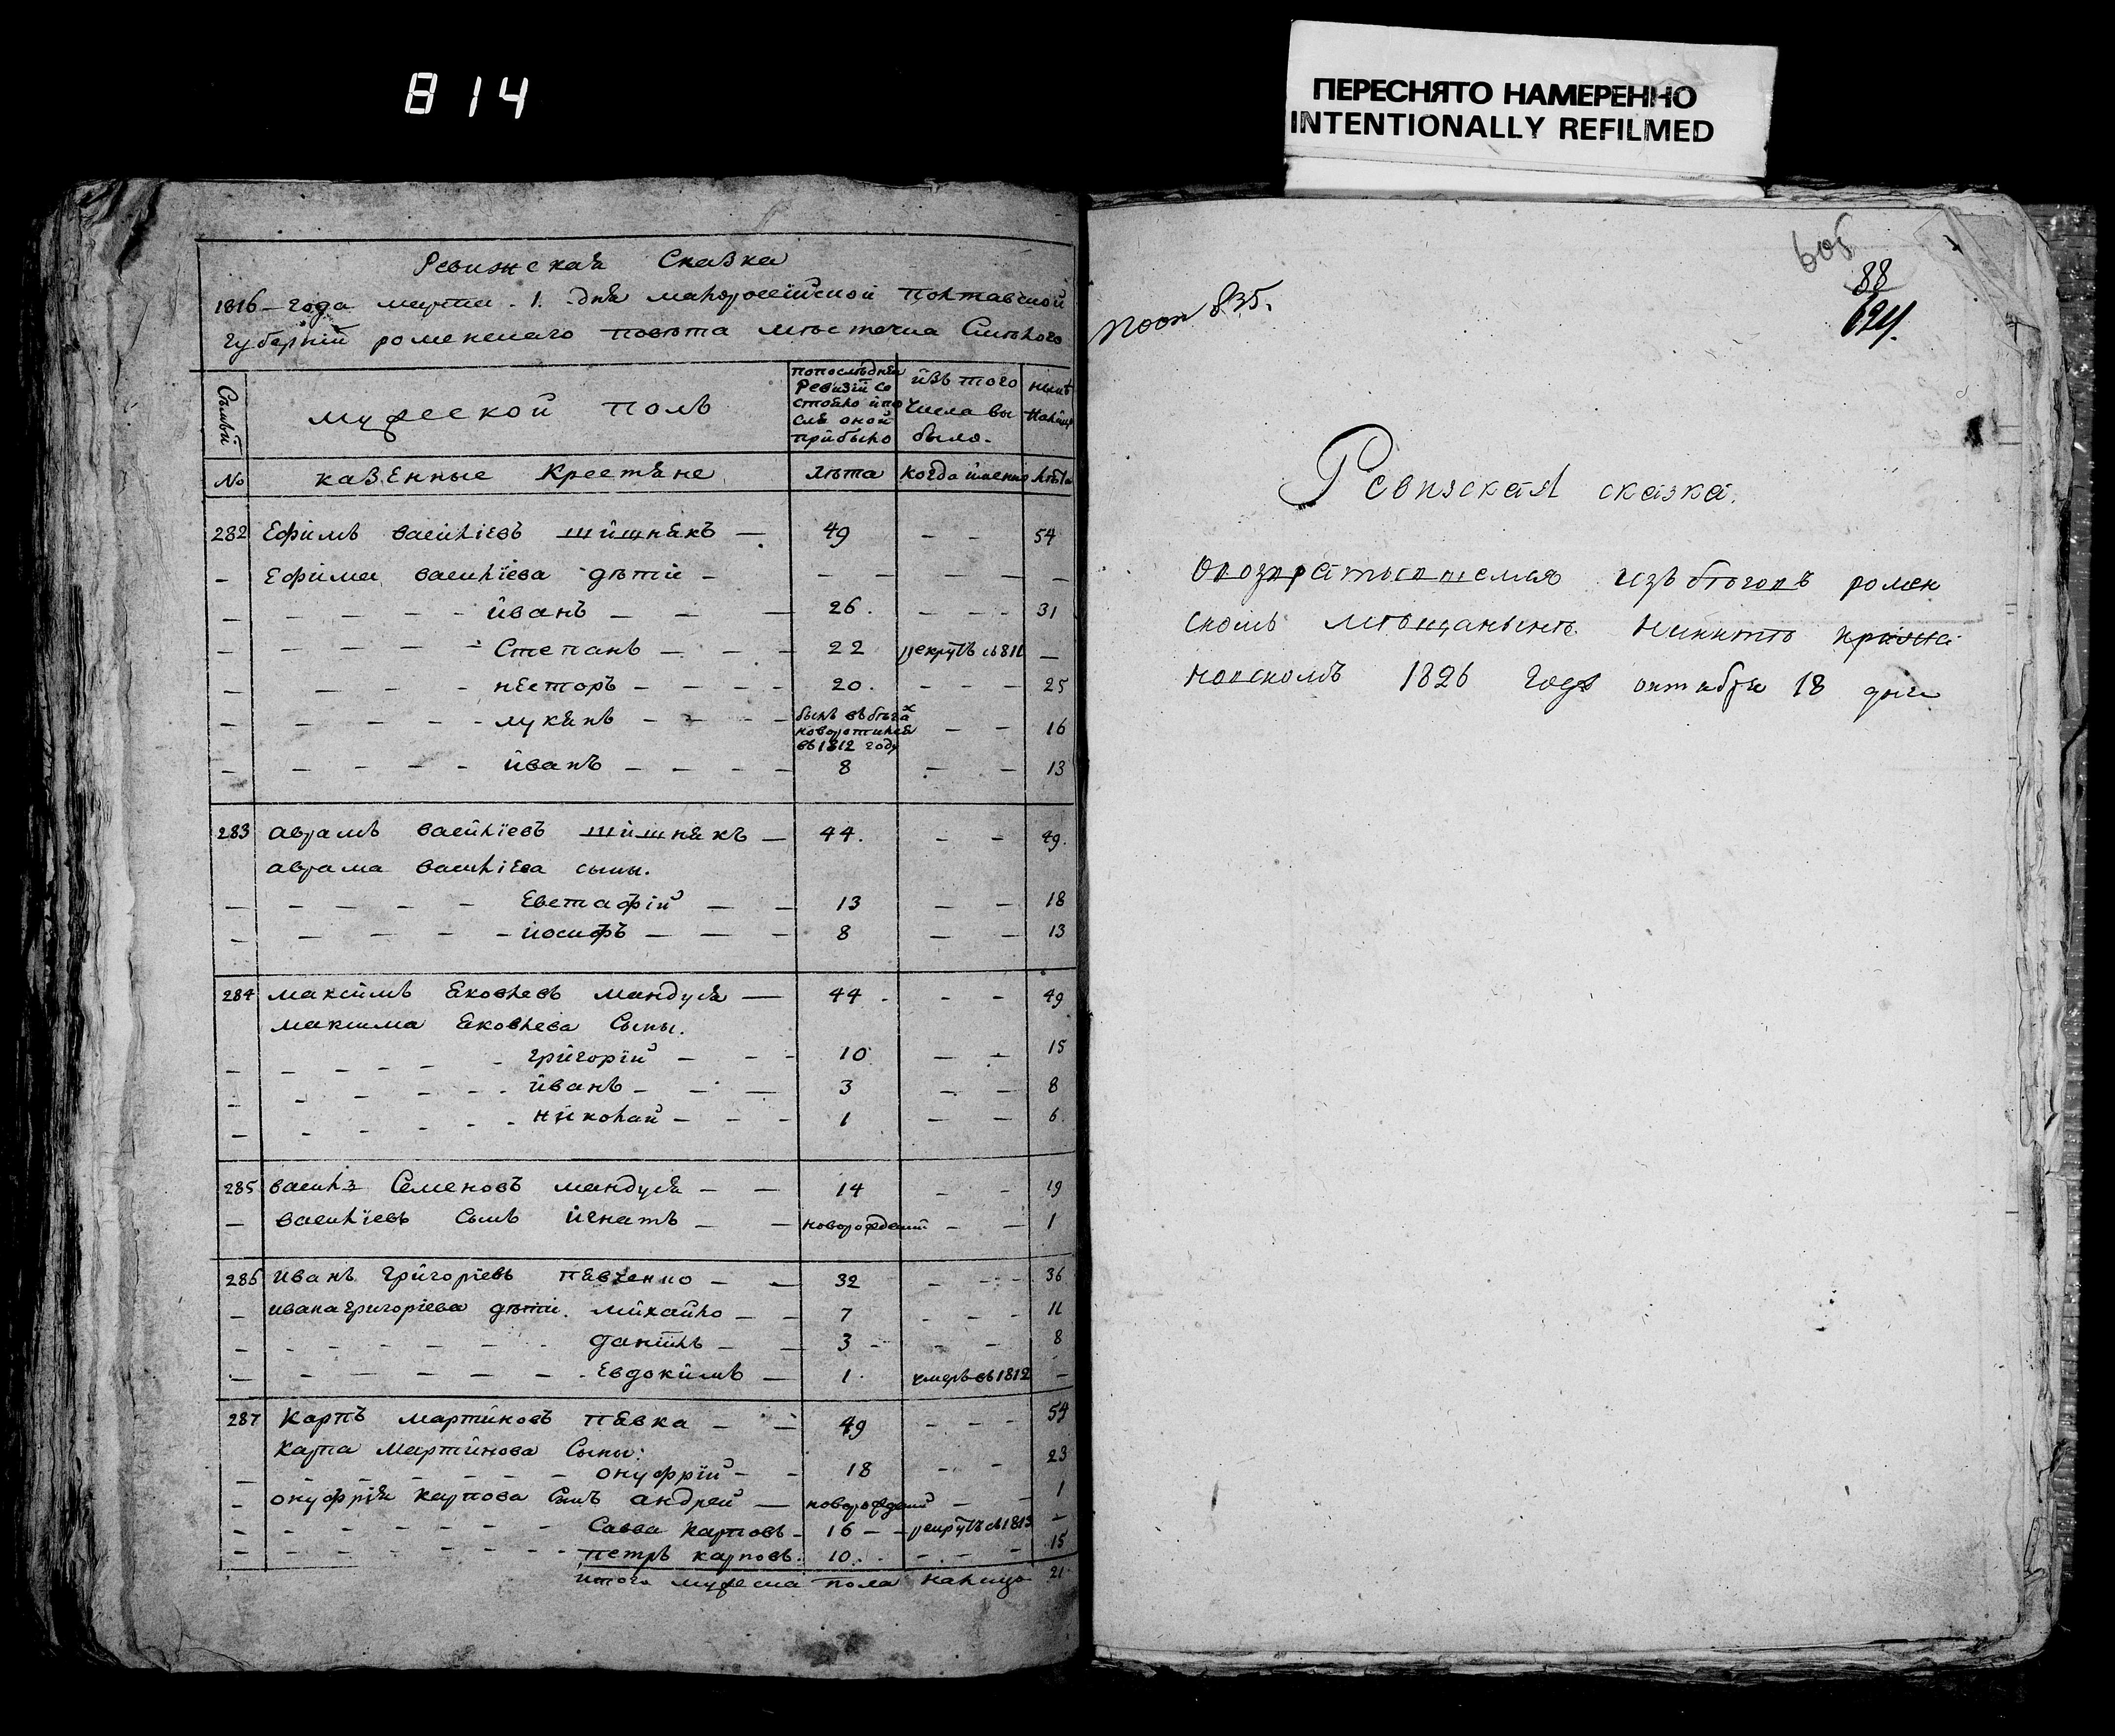 814
ПЕРЕСНЯТО НАМЕРЕННО
INTENTIONALLY REFILMED
Ревижская Сказка
1816 – года марта . 1. дня малороссійской Полтавской
Губерніи роменскаго повѣта мѣстечка Смѣлого
Сѣмьи
мужеской полъ
попослѣдней
Ревизіи со
стояло и по
слѣ оной
прибыло
изъ того
числа вы
было.
нынѣ
на лицо
№
казенные Крестяне
лѣта
когда именно
лѣта
282 Ефимъ василіевъ шишнякъ — 49 - - 54
- Ефима василіева дѣти - - - - -
- иванъ - 26. - - - 31
- Степанъ - 22 рекрутъ въ 811 -
- несторъ - 20. - - - 25
- лукянъ - былъ въ бѣгах
и поворотился
въ 1812 году - - 16
- иванъ - 8 - - 13
283 аврамъ василіевъ шишнякъ — 44. - - 49.
аврама василіева сыны.
- Евстафій - 13 - - 18
- іосифъ - 8 - - 13
284 максимъ яковлевъ мандуся — 44 - - - 49
максима яковлева Сыны.
- григорій - 10 - - 15
- иванъ - 3 - - 8
- николай - 1 - - 6.
285 василь Семеновъ мандуся - - 14 - - 19
- василіевъ Сынъ игнатъ - - новорожденій - - 1
286 иванъ григоріевъ пявченко - - 32 - - - 36
- ивана григоріева дѣти. михайло - - 7 - - - 11
- данілъ - 3 - - - 8
- Евдокимъ - 1. умеръ въ 1812 -
287 Карпъ мартиновъ пявка - - 49 - - - 54
Карпа мартинова Сыны:
- онуфрій - - 18 - - 23
- онуфрія карпова Сынъ андрей — новорожденій - - 1
- Савва карповъ - 16 - - рекрутъ въ 1813 -
- петръ карповъ. 10. . - . - - 15
итого мужеска пола налицо 21
605
88
694.
835.
Ревизская сказка.
О возвратившемся изъ бѣговъ ромен
скомъ мѣщанинѣ Никитѣ крижа
новскомъ 1826 года октября 18 дня